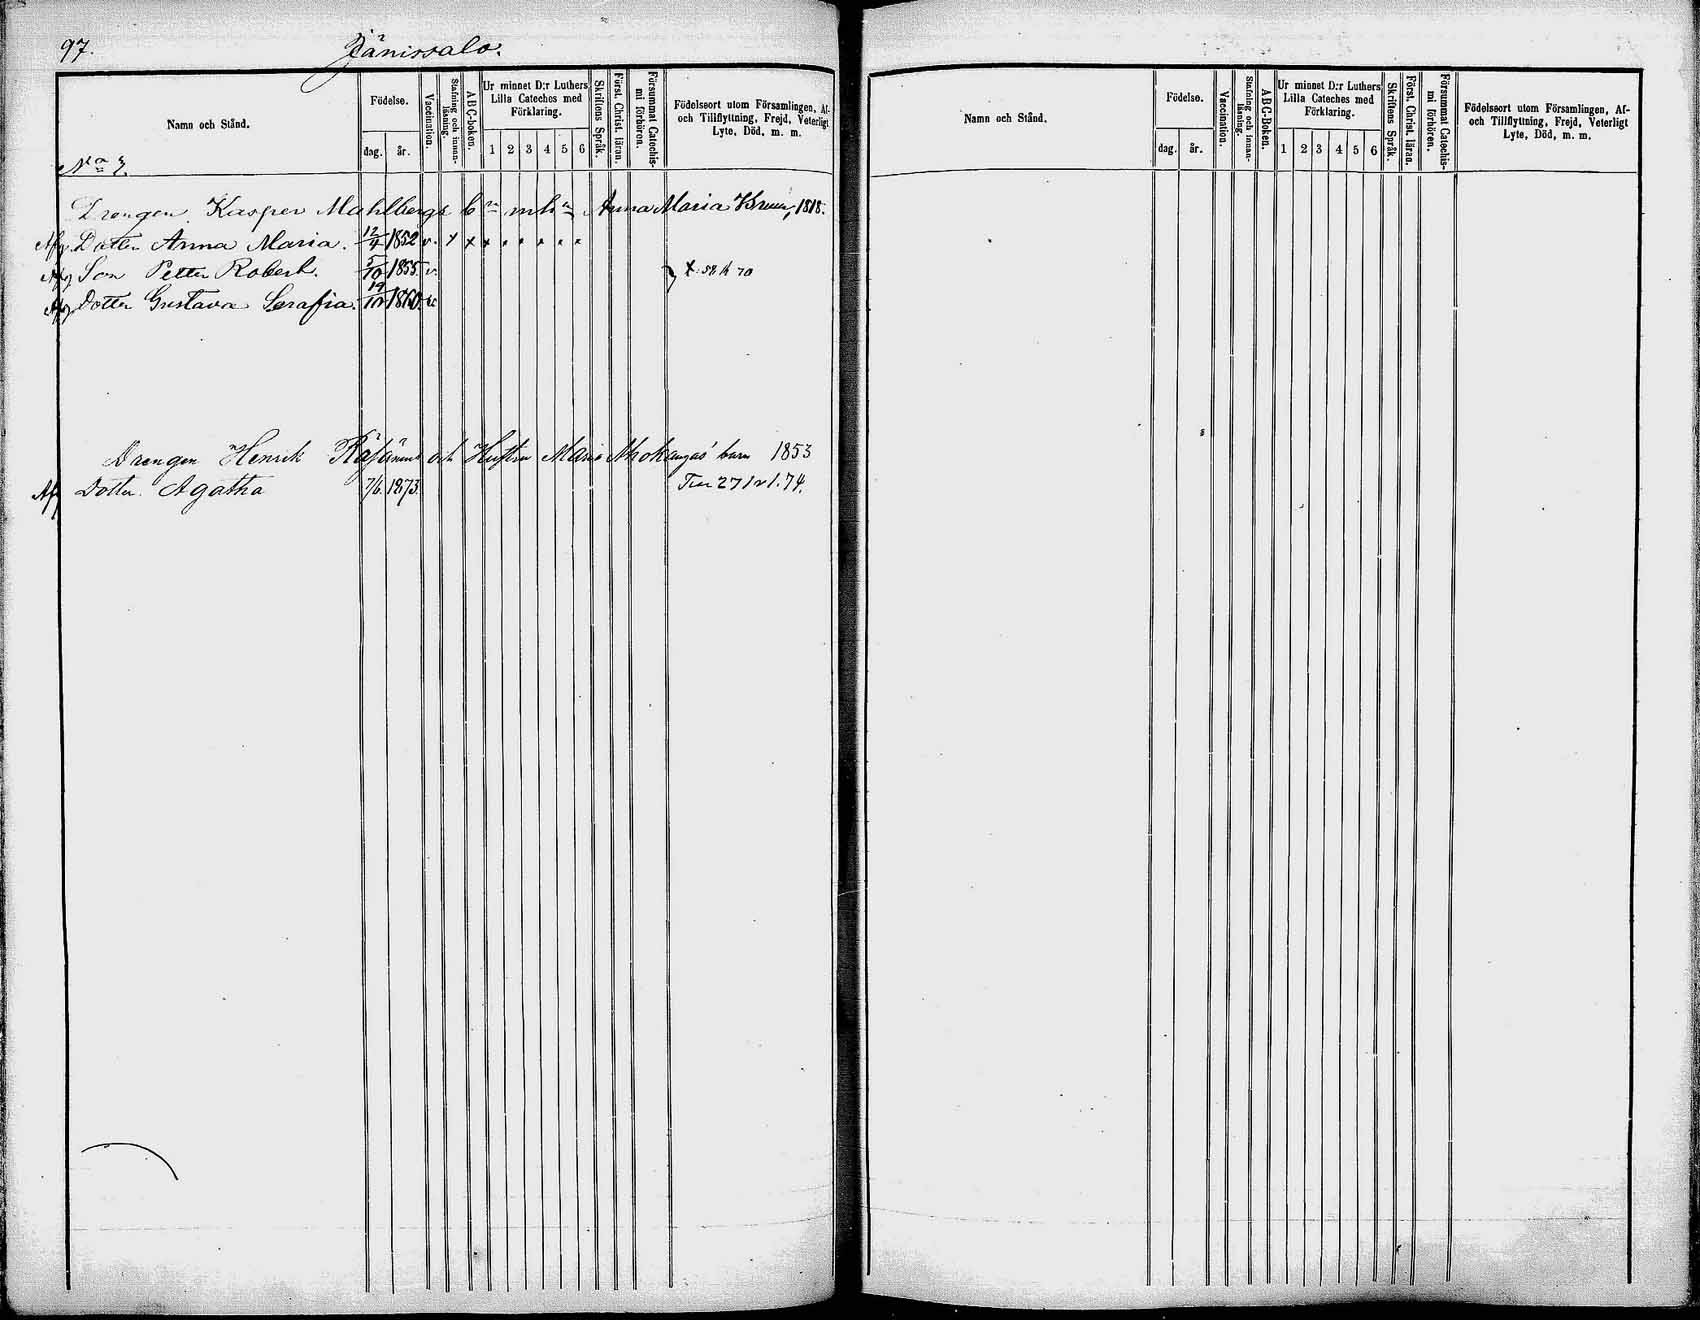 97. Jänissalo.
Namn och Stånd.
Födelse.
dag. år.
Vaccination.
Stafning och innan-läsning.
ABC-boken.
Ur minnet D:r Luthers Lilla Cateches med Förklaring.
1 2 3 4 5 6
Skriftens Språk.
Först. Christ. läran.
Försummat Catechis-mi förhören.
Födelseort utom Församlingen, Af- och Tillflyttning, Frejd, Veterligt Lyte, Död, m. m.
Drengen Kasper Mahlbergs bn mhn Anna Maria 1818.
Afg Dotter Anna Maria. 12/4 1852 v. x x x
Afg Son Petter Robert. 5/10 1855 v.
Afg Dotter Gustava Serafia. 19/10 1860. v.
Drengen Henrik och Hustru Maria barn 1853
Afg Dotter. Agatha 7/6. 1873.
Namn och Stånd.
Födelse.
dag. år.
Vaccination.
Stafning och innan-läsning.
ABC-Boken.
Ur minnet D:r Luthers Lilla Cateches med Förklaring.
1 2 3 4 5 6
Skriftens Språk.
Först. Christ. läran.
Försummat Catechis-mi förhören.
Födelseort utom Församlingen, Af- och Tillflyttning, Frejd, Veterligt Lyte, Död, m. m.